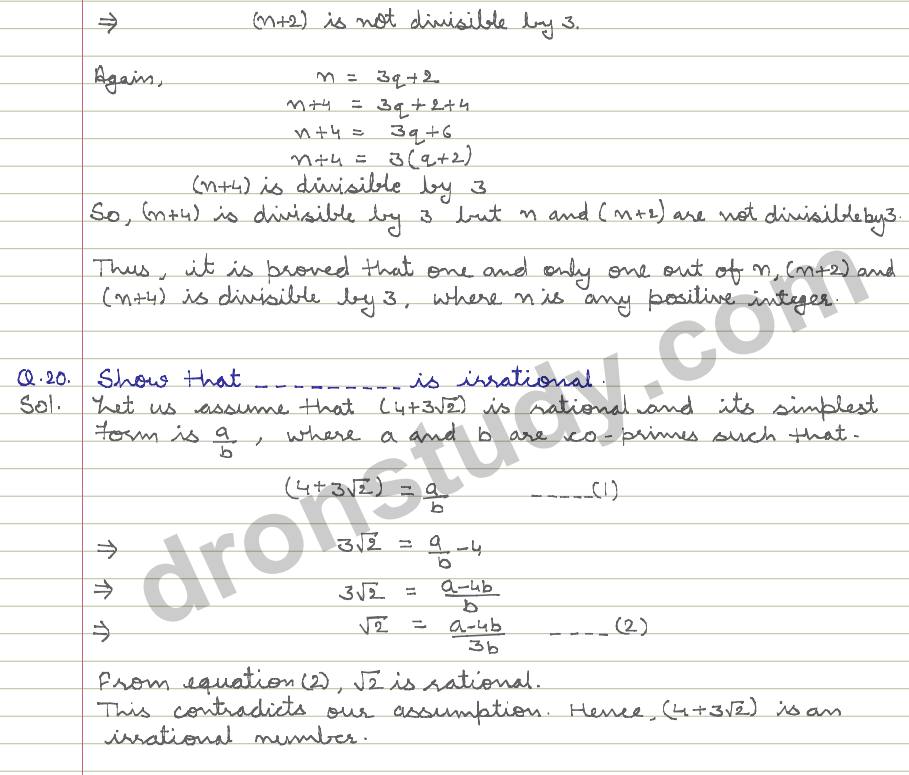 ⇒ (n+2) is not divisible by 3.
Again, n = 3q+2
n+4 = 3q+2+4
n+4 = 3q+6
n+4 = 3(q+2)
(n+4) is divisible by 3
So, (n+4) is divisible by 3 but n and (n+2) are not divisible by 3.
Thus, it is proved that one and only one out of n, (n+2) and
(n+4) is divisible by 3, where n is any positive integer.
Q.20. Show that __________ is irrational.
Sol. Let us assume that (4+3√2) is rational and its simplest
form is a/b, where a and b are co-primes such that-
(4+3√2) = a/b -----(1)
⇒ 3√2 = a/b - 4
⇒ 3√2 = (a-4b)/b
⇒ √2 = (a-4b)/3b ----(2)
From equation (2), √2 is rational.
This contradicts our assumption. Hence, (4+3√2) is an
irrational number.
dronstudy.com